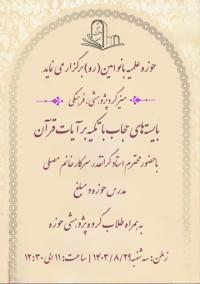 حوزه علمیه بانو امین (ره) برگزار می نماید
میزگرد پژوهشی، فرهنگی
بایسته های حجاب با تکیه بر آیات قرآن
با حضور محترم استاد گرانقدر سرکار خانم مصلی
مدرس حوزه و مبلغ
به همراه طلاب گروه پژوهشی حوزه
زمان: سه شنبه ۱۴۰۳/۸/۲۹ | ساعت: ۱۱ الی ۱۲:۳۰